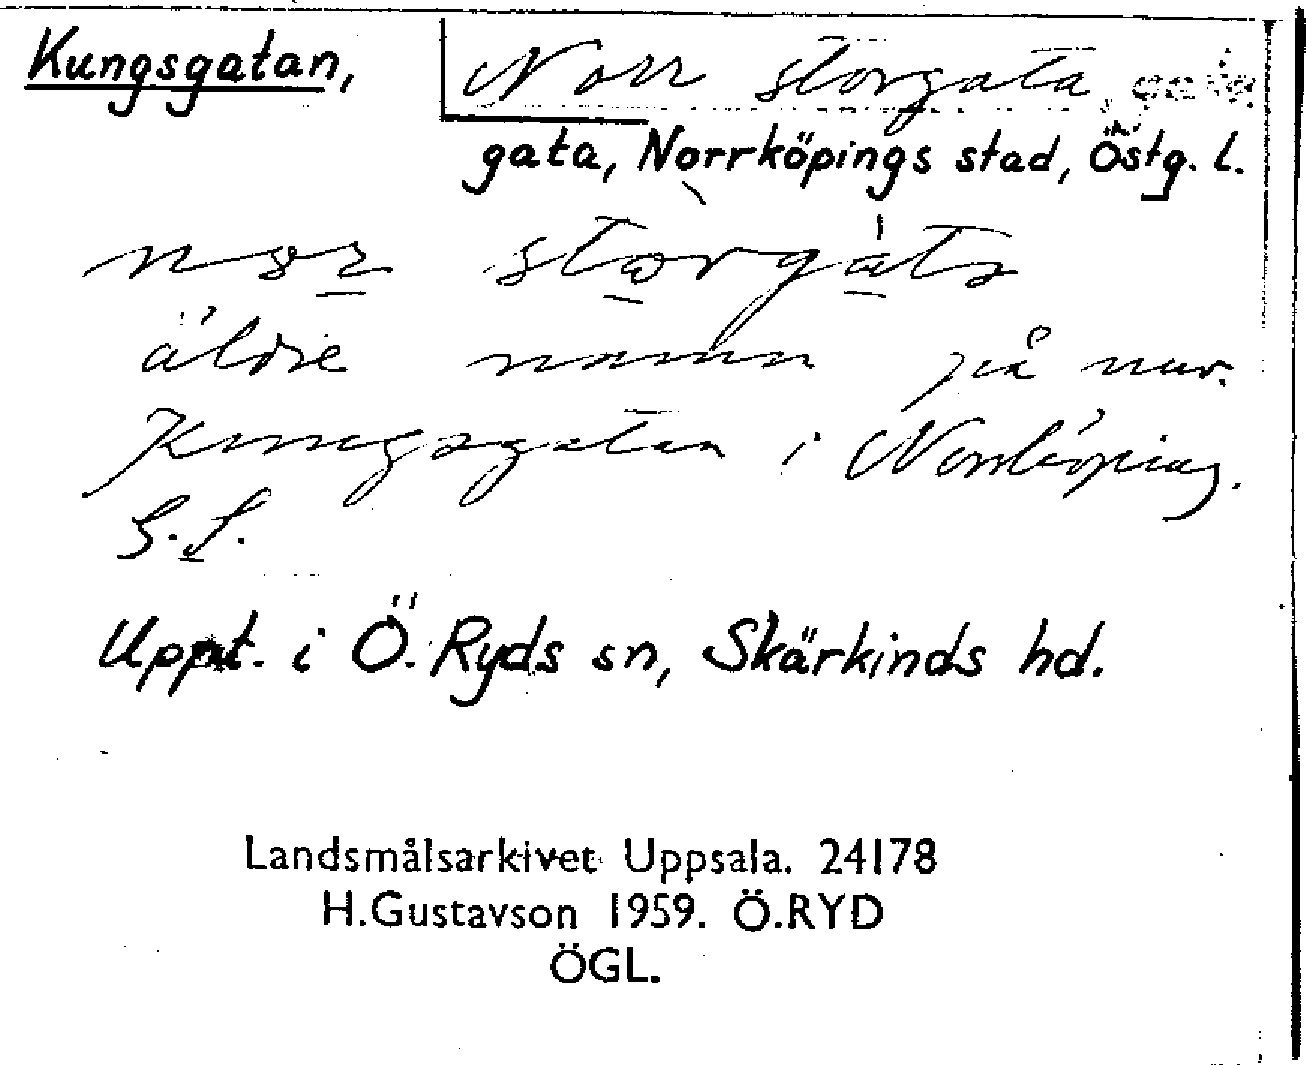 Kungsgatan, Norr storgata
gata, Norrköpings stad, Östg. l.
äldre namn på nuv.
Kungsgatan i Norrköping.
G. L.
Uppt. i Ö. Ryds sn, Skärkinds hd.
Landsmålsarkivet Uppsala. 24178
H.Gustavson 1959. Ö.RYD
ÖGL.